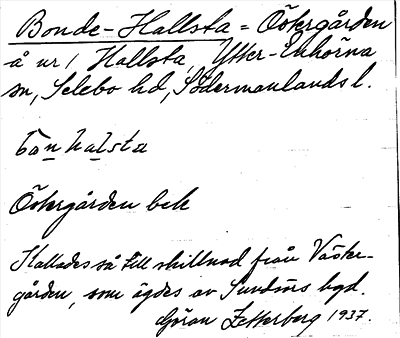 Bonde-Hallsta = Östergården
å nr 1 Hallsta, Ytter-Enhörna
sn, Selebo hd, Södermanlands l.
bån halsta
Östergården bek
Kallades så till skillnad från Väster-
gården, som ägdes av Sundsvs bgd.
Göran Zetterberg 1937.